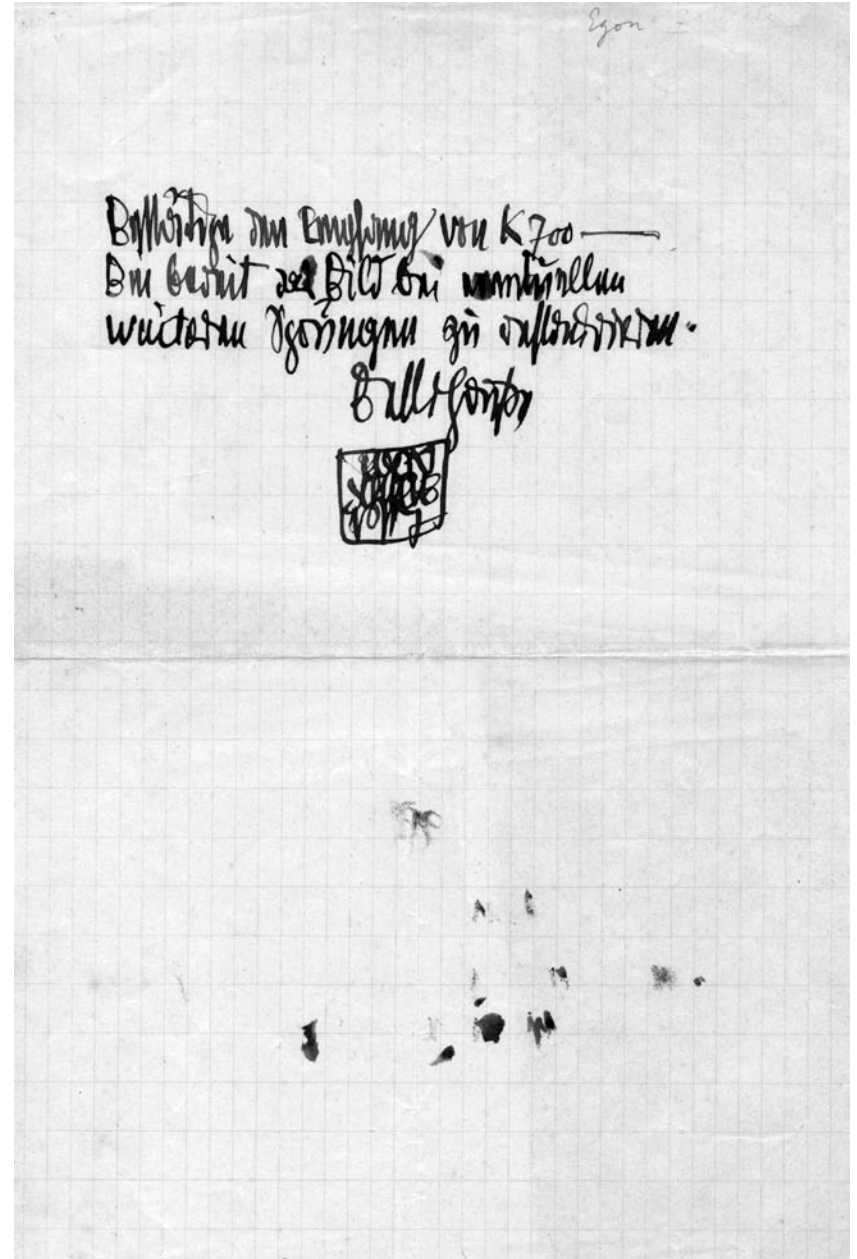 Egon
Bestätige den Empfang von K 700 —
Bin bereit das Bild bei eventuellen
weiteren Sprüngen zu restaurieren.
EGON
SCHIELE